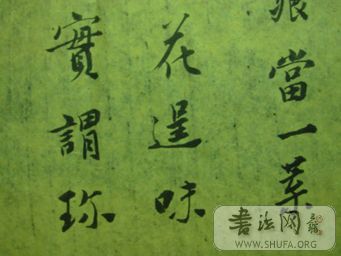 當一葉
花逞味
實謂珍
書法网
WWW.SHUFA.ORG